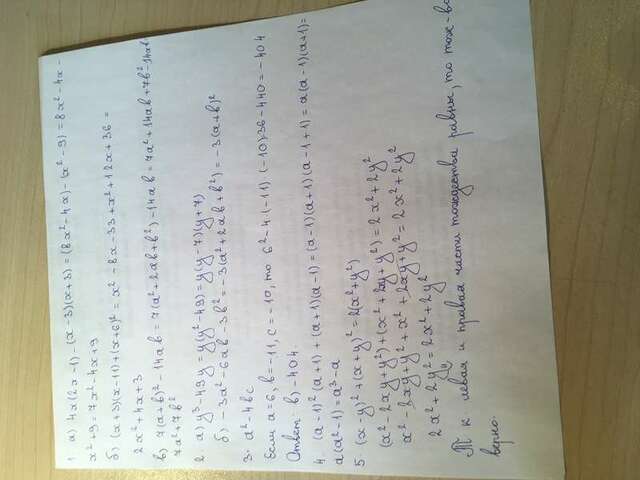 1. а) 4x(2x-1) - (x-3)(x+3) = (8x²-4x) - (x²-9) = 8x²-4x-
x²+9 = 7x²-4x+9
б) (x+3)(x-11) + (x+6)² = x²-8x-33+x²+12x+36 =
2x²+4x+3
в) 7(a+b)²-14ab = 7(a²+2ab+b²)-14ab = 7a²+14ab+7b²-14ab
7a²+7b²
2. а) y³-49y = y(y²-49) = y(y-7)(y+7)
б) -3a²-6ab-3b² = -3(a²+2ab+b²) = -3(a+b)²
3. a²-4bc
Если a=6, b=-11, c=-10, то 6²-4·(-11)·(-10)=36-440=-404
Ответ: в) -404.
4. (a-1)²(a+1)+(a+1)(a-1) = (a-1)(a+1)(a-1+1) = a(a-1)(a+1) =
a(a²-1) = a³-a
5. (x-y)²+(x+y)² = 2(x²+y²)
(x²-2xy+y²)+(x²+2xy+y²) = 2x²+2y²
x²-2xy+y²+x²+2xy+y² = 2x²+2y²
2x²+2y² = 2x²+2y²
Т к левая и правая части тождества равны, то тож-во
верно.